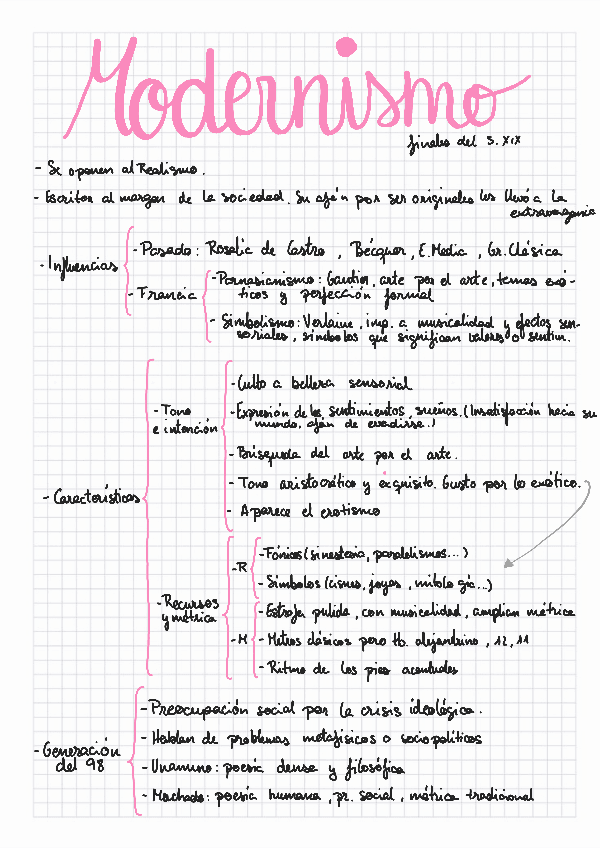 Modernismo
finales del S. XIX
- Se oponen al Realismo.
- Escritor al margen de la sociedad. Su afán por ser originales les llevó a la
extravagancia
- Influencias
- Pasado: Rosalía de Castro, Bécquer, E. Media, Gr. Clásica
- Francia
- Parnasianismo: Gautier, arte por el arte, temas exó-
ticos y perfección formal
- Simbolismo: Verlaine, imp. a musicalidad y efectos sen-
soriales, símbolos que significan valores o sentim.
- Características
- Tono
e intención
- Culto a belleza sensorial
- Expresión de los sentimientos, sueños. (Insatisfacción hacia su
mundo, afán de evadirse.)
- Búsqueda del arte por el arte.
- Tono aristocrático y exquisito. Gusto por lo exótico.
- Aparece el erotismo
- Recursos
y métrica
- R
- Fónicos (sinestesia, paralelismos...)
- Símbolos (cisnes, joyas, mitología...)
- M
- Estrofa pulida, con musicalidad, amplían métrica
- Metros clásicos pero tb. alejandrino, 12, 11
- Ritmo de los pies acentuales
- Generación
del 98
- Preocupación social por la crisis ideológica.
- Hablan de problemas metafísicos o sociopolíticos
- Unamuno: poesía densa y filosófica
- Machado: poesía humana, pr. social, métrica tradicional